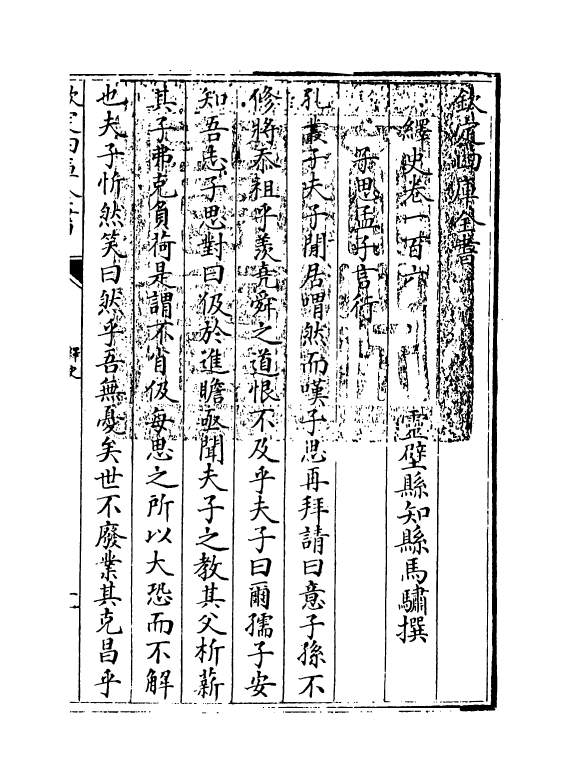 欽定四庫全書
繹史卷一百六　靈壁縣知縣馬驌撰
子思孟子言行
孔叢子夫子閒居喟然而嘆子思再拜請曰意子孫不
修將忝祖乎羨堯舜之道恨不及乎夫子曰爾孺子安
知吾志子思對曰伋於進瞻亟聞夫子之教其父析薪
其子弗克負荷是謂不肖伋每思之所以大恐而不解
也夫子忻然笑曰然乎吾無憂矣世不廢業其克昌乎
欽定四庫全書
繹史